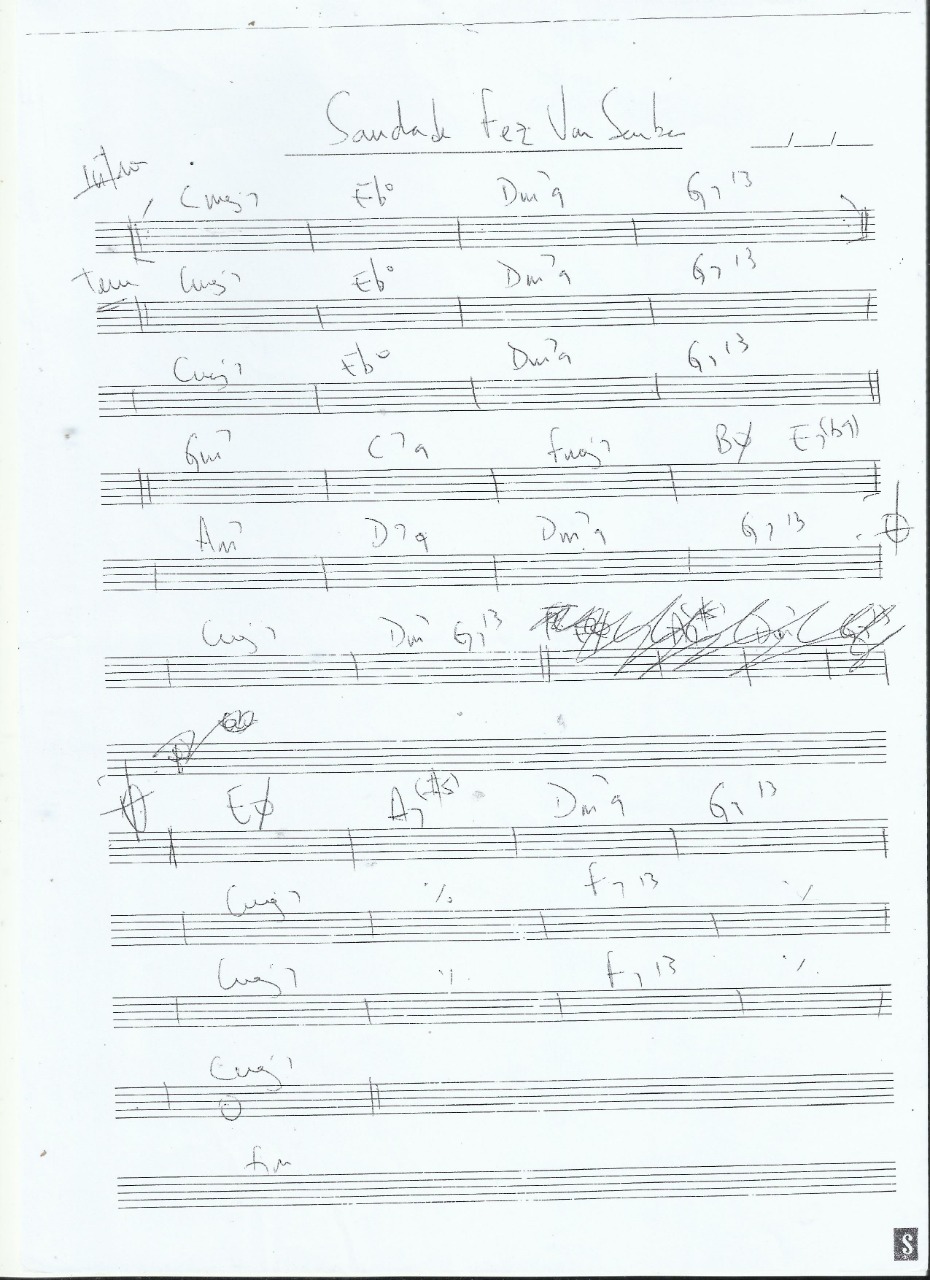 Saudade Fez Um Samba
__/__/__
Intro
Cmaj7 Eb° Dm7 9 G7 13
Tema Cmaj7 Eb° Dm7 9 G7 13
Cmaj7 Eb° Dm7 9 G7 13
Gm7 C7 9 Fmaj7 Bø E7(b9)
Am7 D7 9 Dm7 9 G7 13
Cmaj7 Dm7 G7 13
Eø A7(#5) Dm7 9 G7 13
Cmaj7 % F7 13 %
Cmaj7 % F7 13 %
Cmaj7
Fim
S